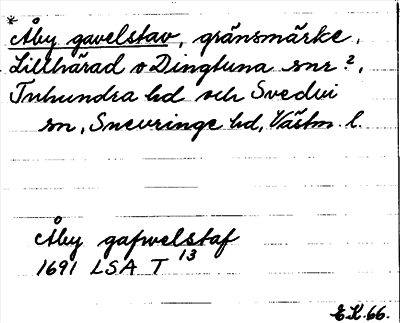 * Åby gavelstav, gränsmärke,
Lillhärad o Dingtuna snr ?,
Tuhundra hd och Svedvi
sn, Snevringe hd, Västm. l.
Åby gafwelstaf
1691 LSA T 13
E.K. 66.